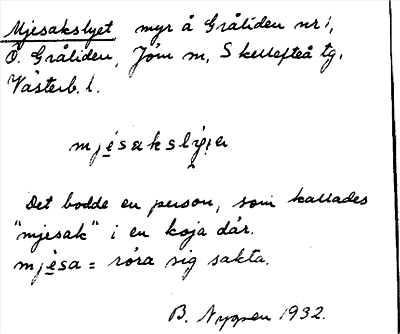 Mjesakslyet myr å Gråliden nr 1,
Ö. Gråliden, Jörn sn, Skellefteå tg,
Västerb. l.
mjésakslýe
Det bodde en person, som kallades
"mjesak" i en koja där.
mjèsa = röra sig sakta.
B. Nygren 1932.